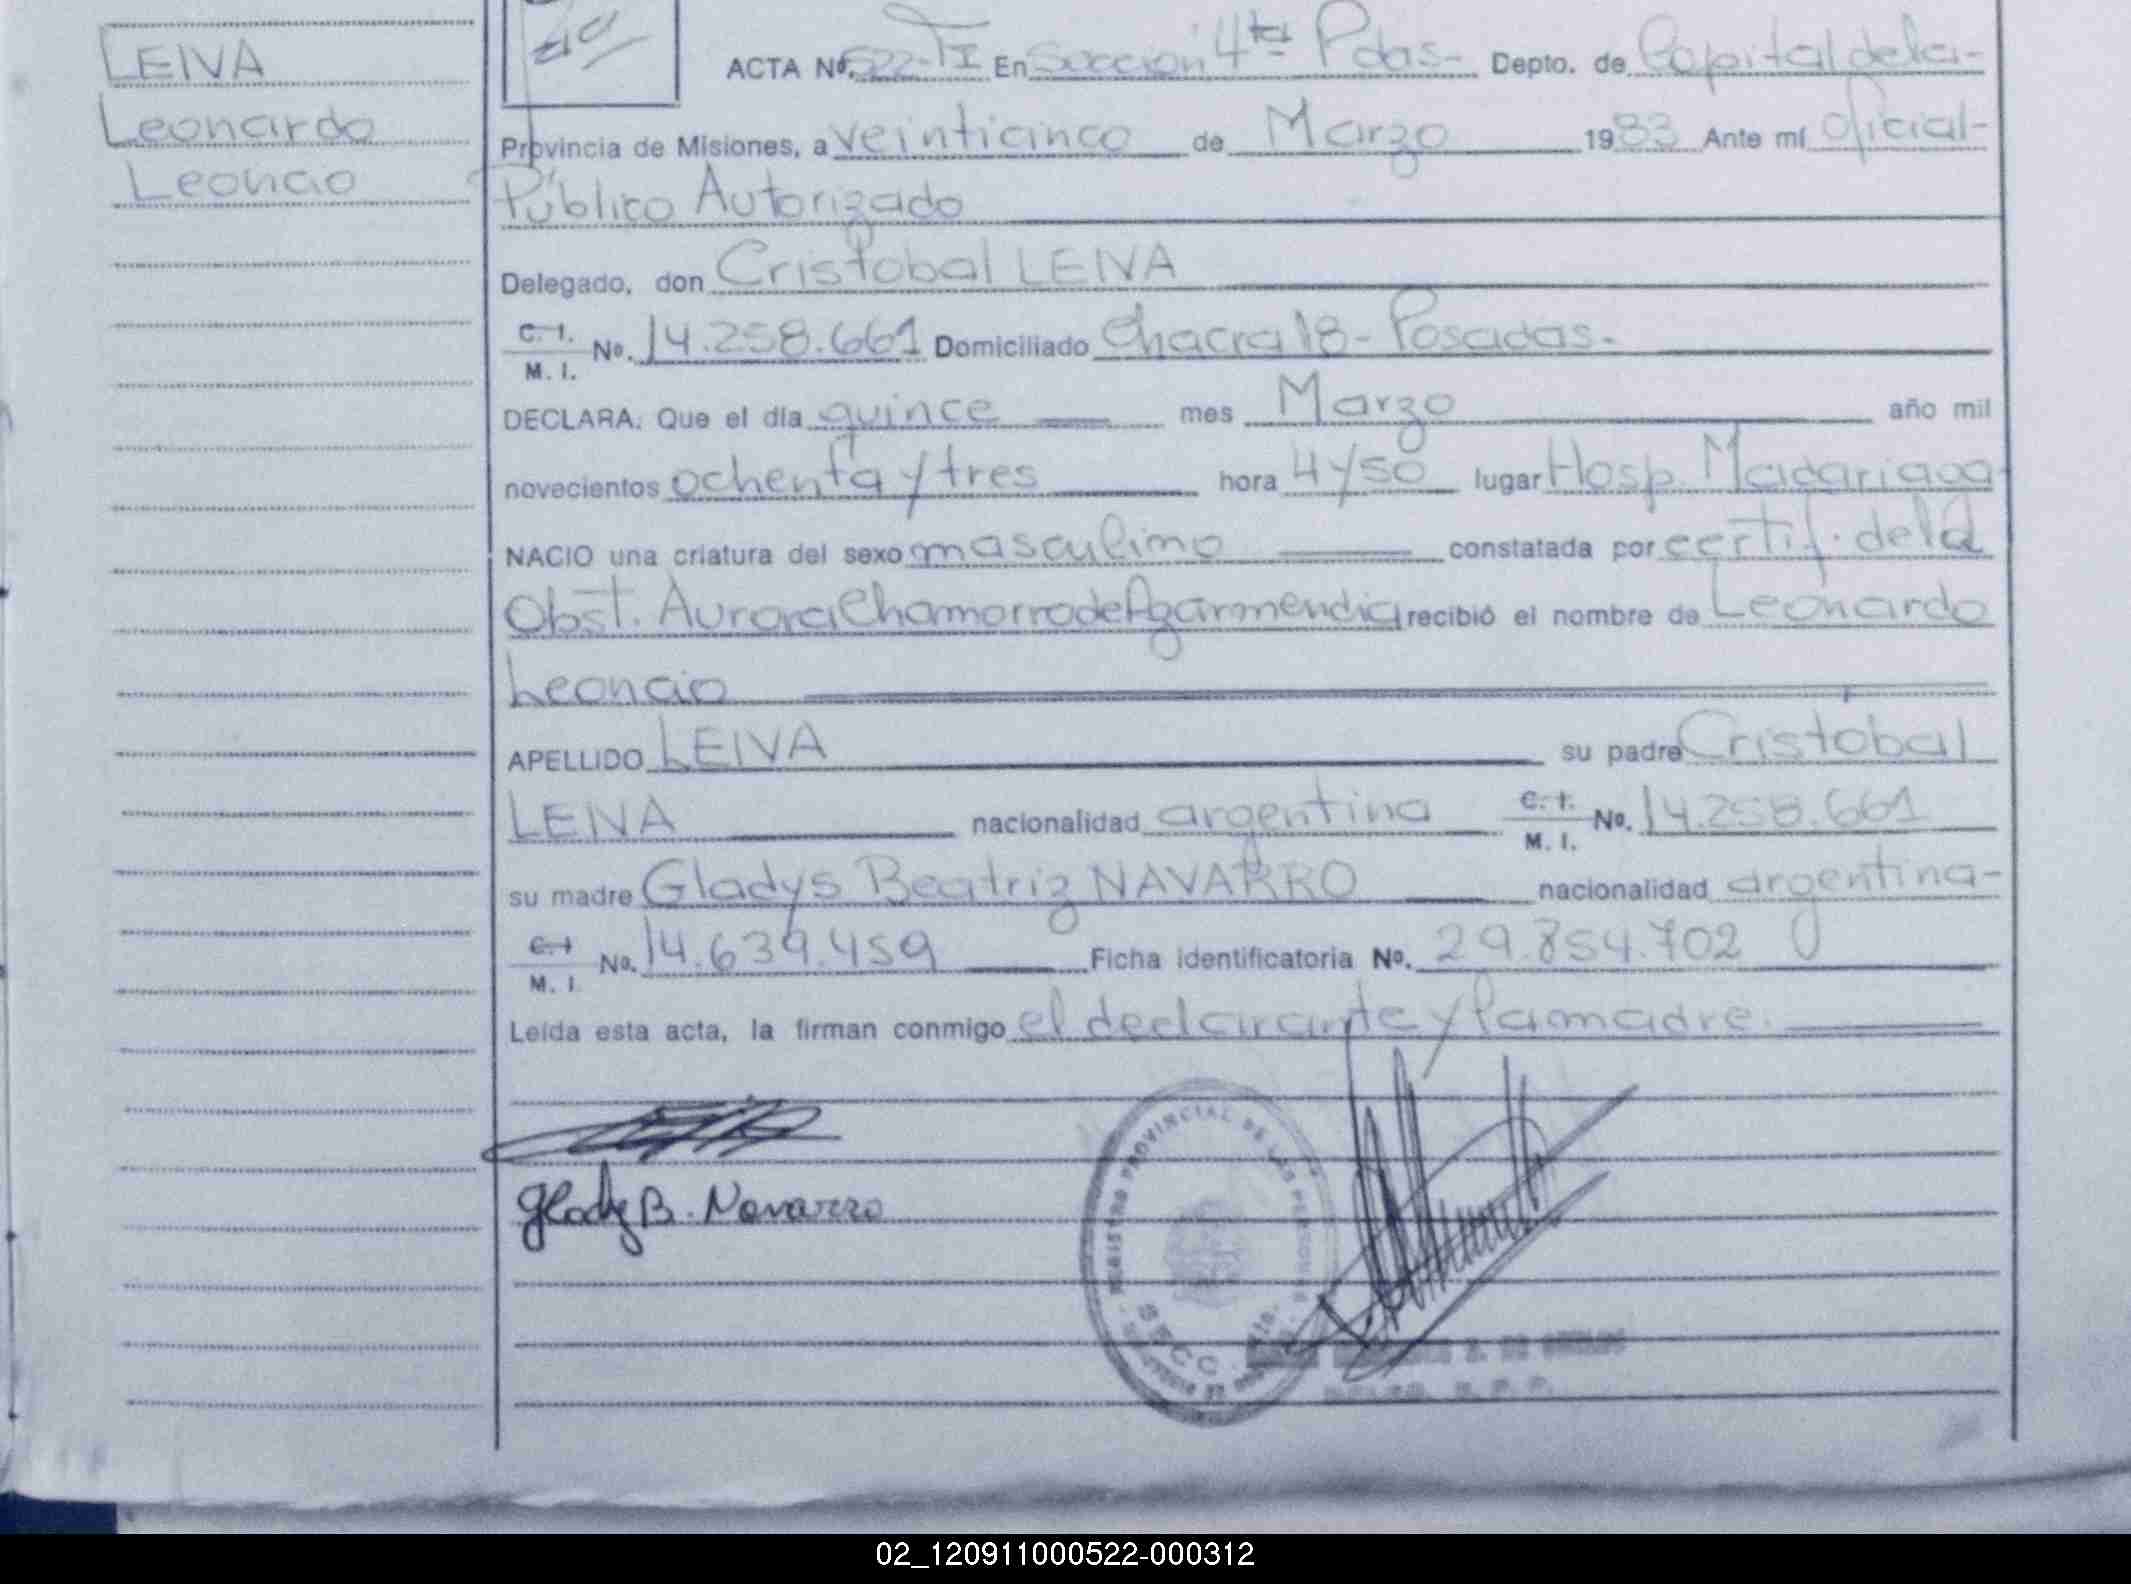 LEIVA
Leonardo
Leoncio
ACTA Nº. 522-TI En Sección 4ta Pdas- Depto. de Capital de la-
Provincia de Misiones, a veinticinco de Marzo 1983 Ante mí Oficial-
Público Autorizado
Delegado, don Cristobal LEIVA
C. I. M. I. Nº. 14.258.661 Domiciliado Chacra 18- Posadas-
DECLARA: Que el día quince mes Marzo año mil
novecientos ochenta y tres hora 4 y 50 lugar Hosp. Madariaga-
NACIO una criatura del sexo masculino constatada por certif. de la
Obst. Aurora Chamorro de Agarmendia recibió el nombre de Leonardo
Leoncio
APELLIDO LEIVA su padre Cristobal
LEIVA nacionalidad argentina C. I. M. I. Nº. 14.258.661
su madre Gladys Beatriz NAVARRO nacionalidad argentina-
C. I M. I. Nº. 14.639.459 Ficha identificatoria Nº. 29.854.702
Leída esta acta, la firman conmigo el declarante y la madre.
Glady B. Navarro
REGISTRO PROVINCIAL DE LAS PERSONAS
SECC. 4ta.
02_120911000522-000312